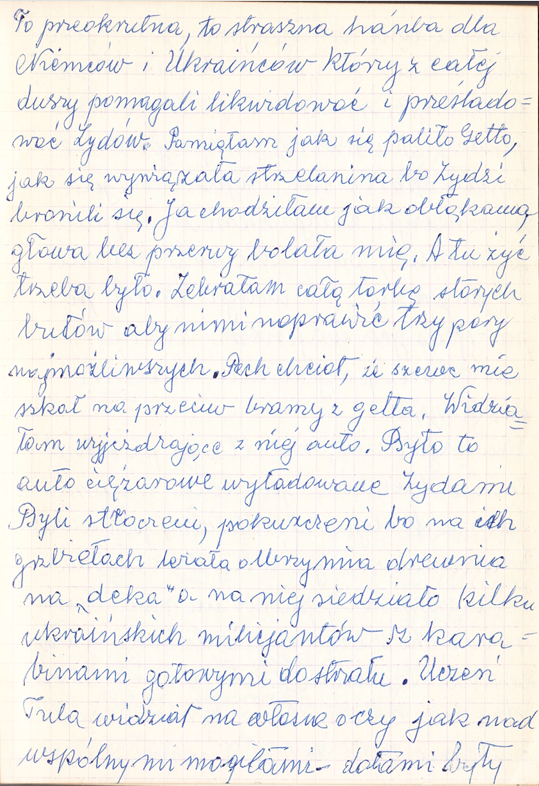 To przeokrutna, to straszna hańba dla
Niemców i Ukraińców którzy z całej
duszy pomagali likwidować i prześlado=
wać Żydów. Pamiętam jak się paliło Getto,
jak się wywiązała strzelanina bo Żydzi
bronili się. Ja chodziłam jak obłąkana,
głowa bez przerwy bolała mię. A tu żyć
trzeba było. Zebrałam całą torbę starych
butów aby nimi naprawić trzy pary
najmożliwszych. Pech chciał, że szewc mie
szkał na przeciw bramy z getta. Widzia=
łam wyjeżdrające z niej auto. Było to
auto ciężarowe wyładowane Żydami
Byli stłoczeni, pokurczeni bo na ich
grzbietach leżała olbrzymia drewnia
na „deka" a na niej siedziało kilku
ukraińskich milicjantów z kara=
binami gotowymi do strału. Uczeń
Tula widział na własne oczy jak nad
wspólnymi mogiłami - dołami były